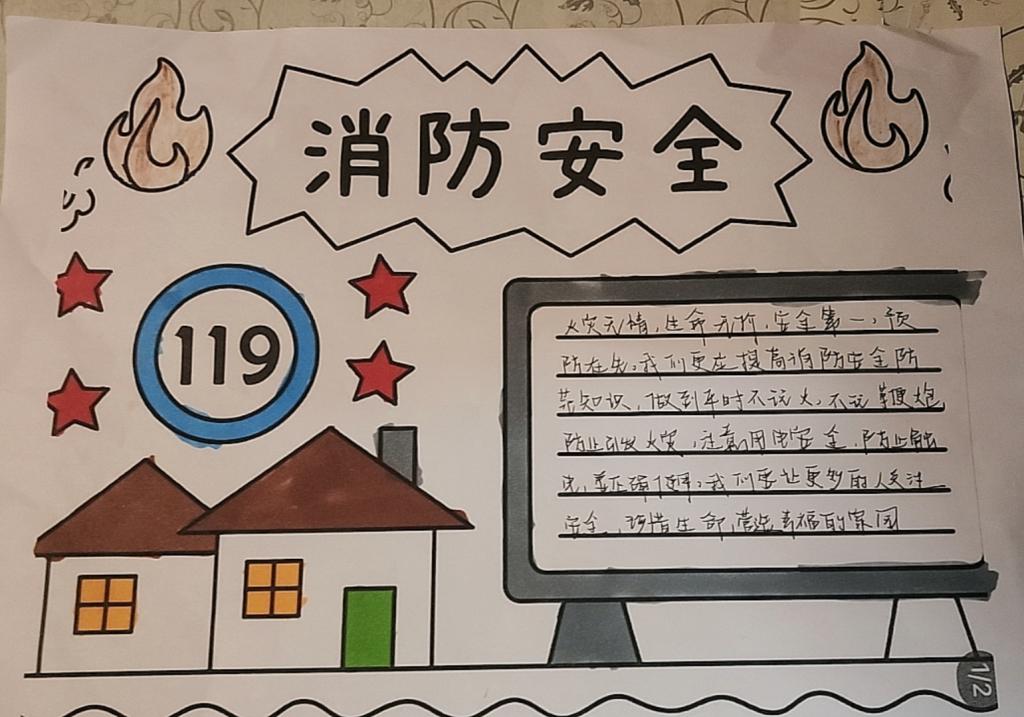 消防安全
119
火灾无情,生命无价,安全第一,预
防在先,我们更应提高消防安全防
范知识,做到平时不玩火,不玩鞭炮
防止引发火灾,注意用电安全,防止触
电,要正确使用,我们要让更多的人关注
安全,珍惜生命,营造幸福的家园
1/2